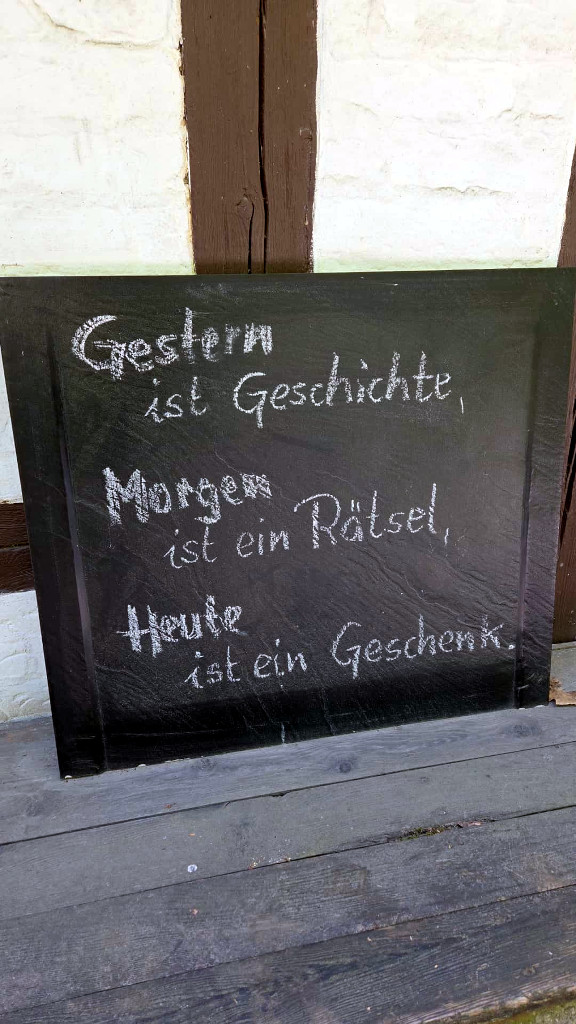 Gestern
ist Geschichte,
Morgen
ist ein Rätsel,
Heute
ist ein Geschenk.